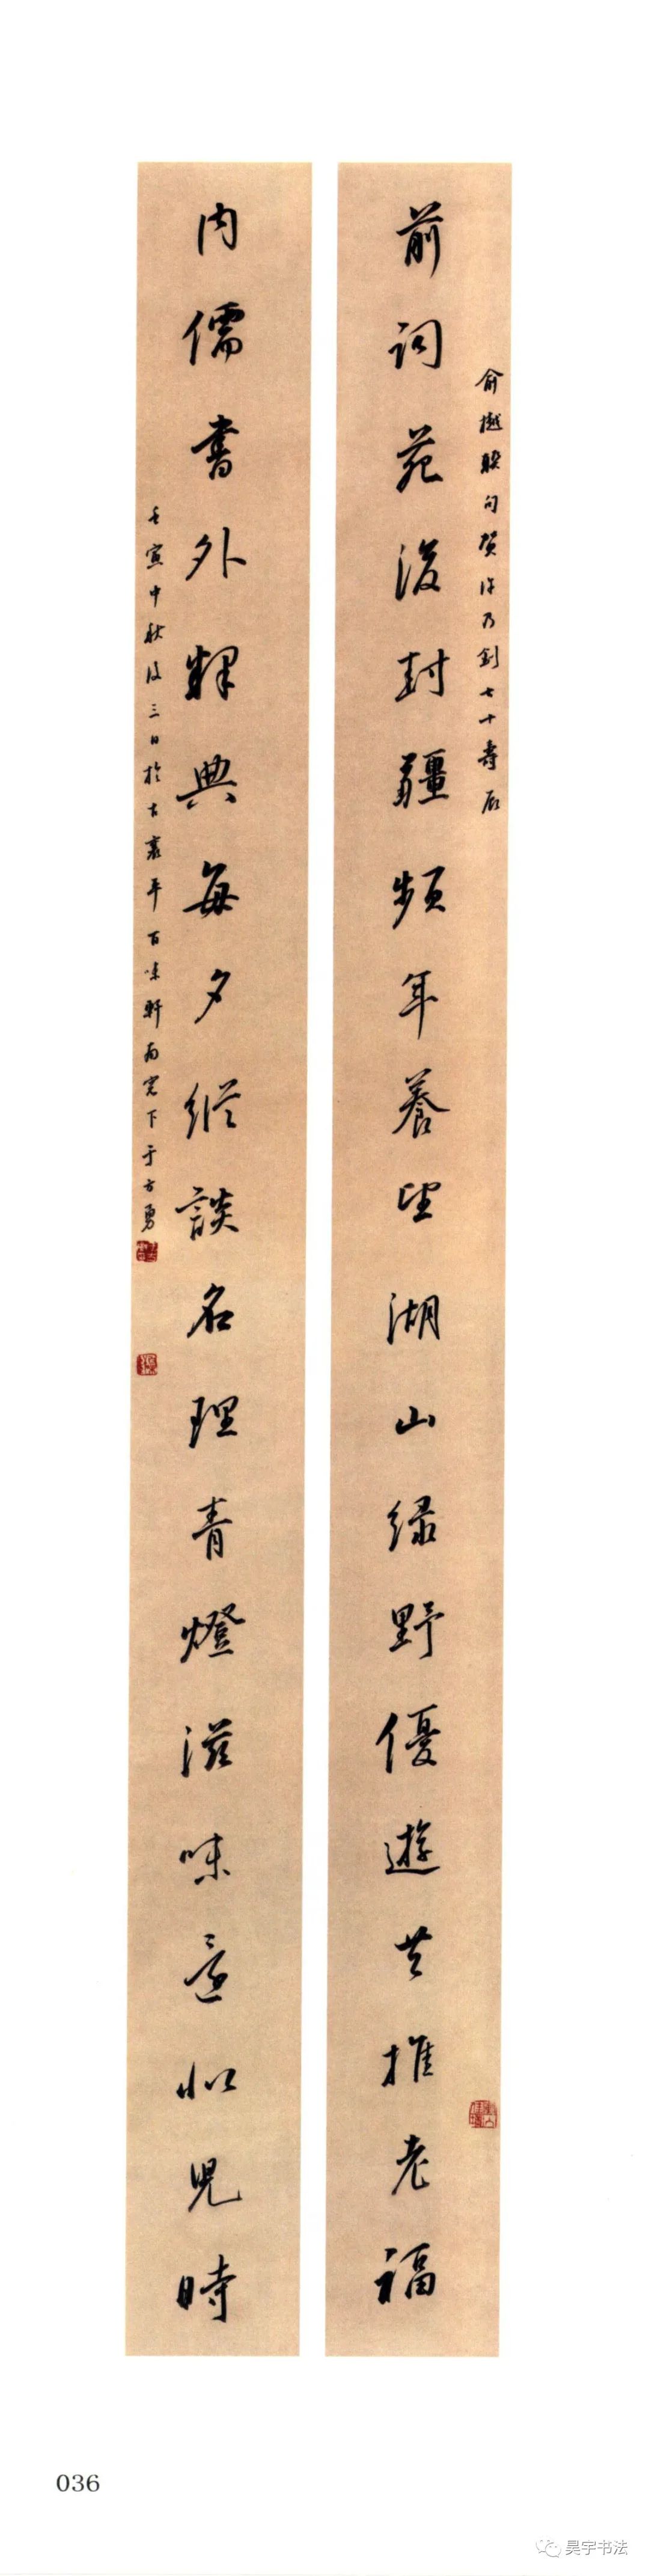 前詞苑後封疆頻年養望湖山緑野優遊共推老福
俞樾联句贺许乃钊七十寿辰
内儒書外釋典每夕縱談名理青燈滋味還似兒時
壬寅中秋後三日於古襄平百味軒南窓下于方勇
036
昊宇书法